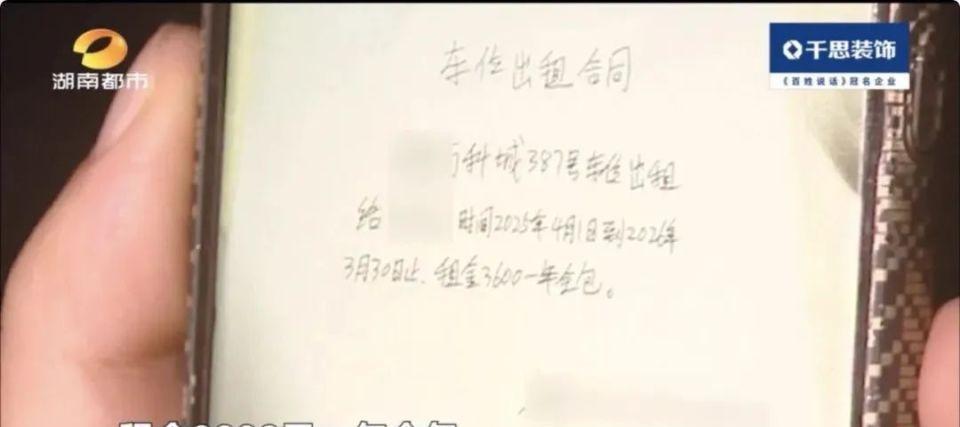 湖南都市
千思装饰
《百姓说话》冠名企业
车位出租合同
科城387号车位出租
给 时间2025年4月1日到2026年
3月30日止、租金3600一年全包。